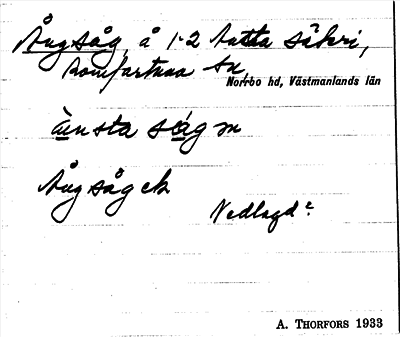 Ångsåg, å 1-2 Latta säteri,
Romfartuna sn,
Norrbo hd, Västmanlands län
ånsta ság m
Ångsåg ck
Nedlagd?
A. THORFORS 1933